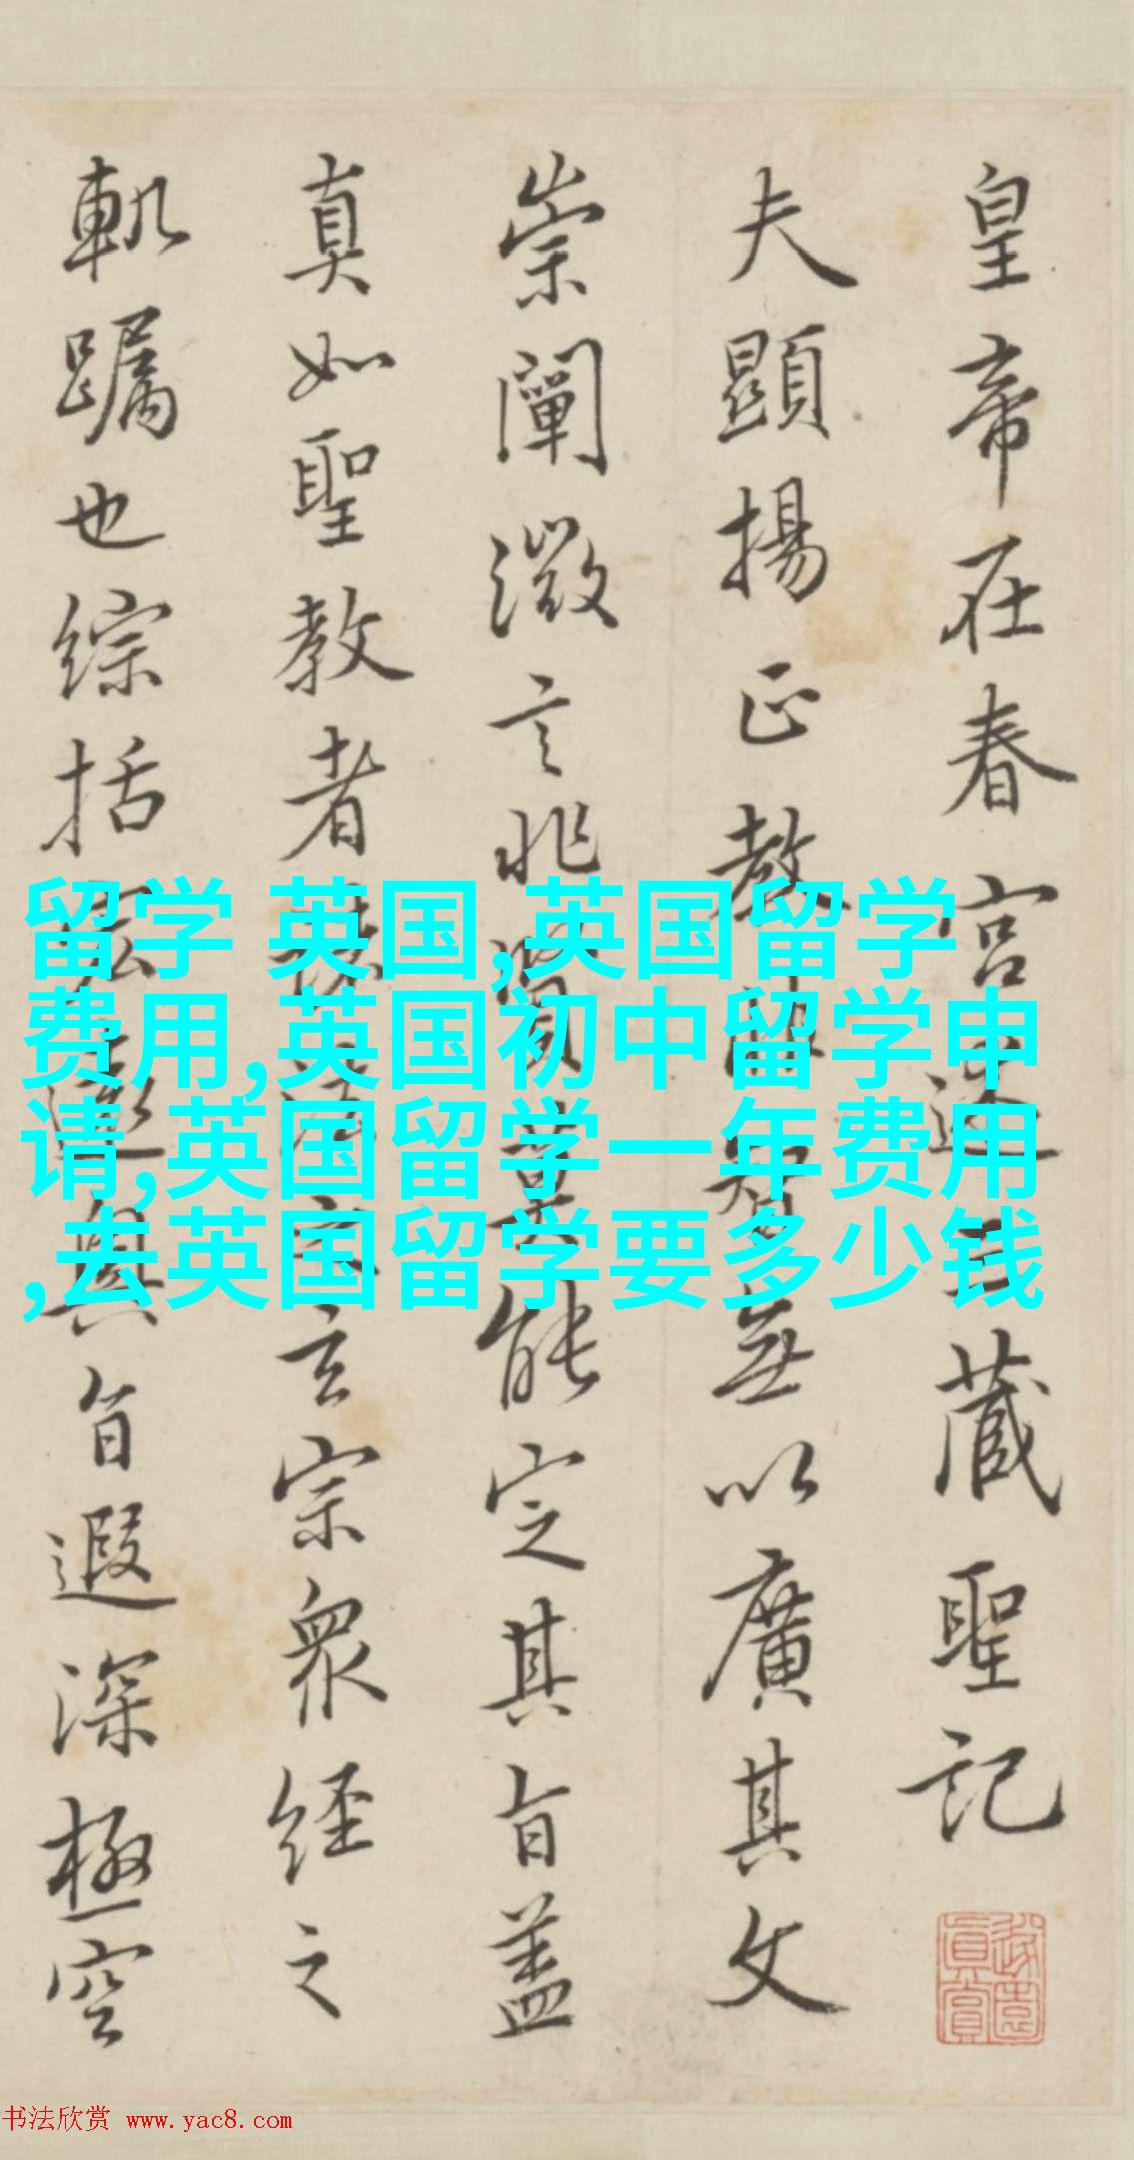 皇帝在春宮述三藏聖記
夫顯揚正教非智無以廣其文
崇闡微言非賢莫能定其旨蓋
真如聖教者諸法之玄宗眾經之
軌躅也綜括宏遠奧旨遐深極空
留学 英国,英国留学
费用,英国初中留学申
请,英国留学一年费用
,去英国留学要多少钱
书法欣赏 www.yac8.com